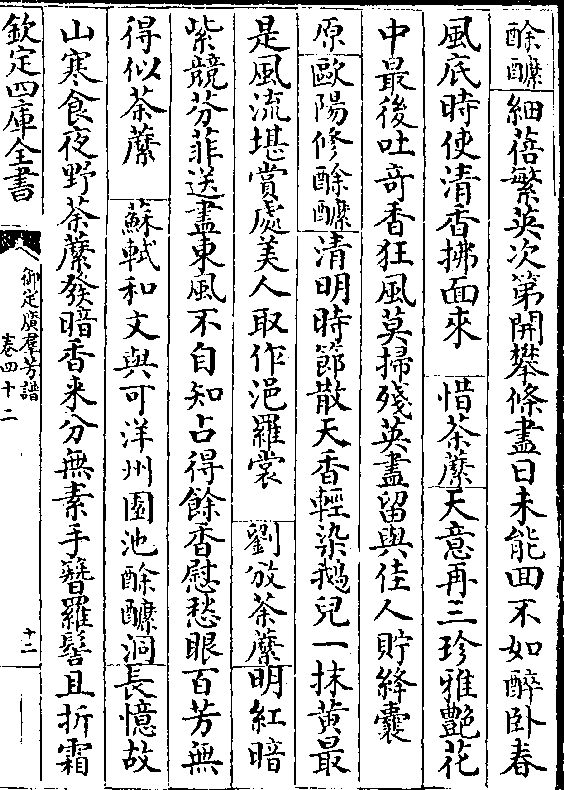 酴醾細蓓繁英次第開攀條盡日未能回不如醉卧春
風底時使清香拂面來　惜荼蘼天意再三珍雅艶花
中最後吐奇香狂風莫掃殘英盡留與佳人貯絳囊
原歐陽修酴醾清明時節散天香輕染鵝兒一抹黄最
是風流堪賞處美人取作浥羅裳　劉攽荼蘼明紅暗
紫競芬菲送盡東風不自知占得餘香慰愁眼百芳無
得似荼蘼　蘇軾和文與可洋州園池酴醾洞長憶故
山寒食夜野荼蘼發暗香来分無素手簪羅髻且折霜
欽定四庫全書
御定廣羣芳譜
卷四十二
十二